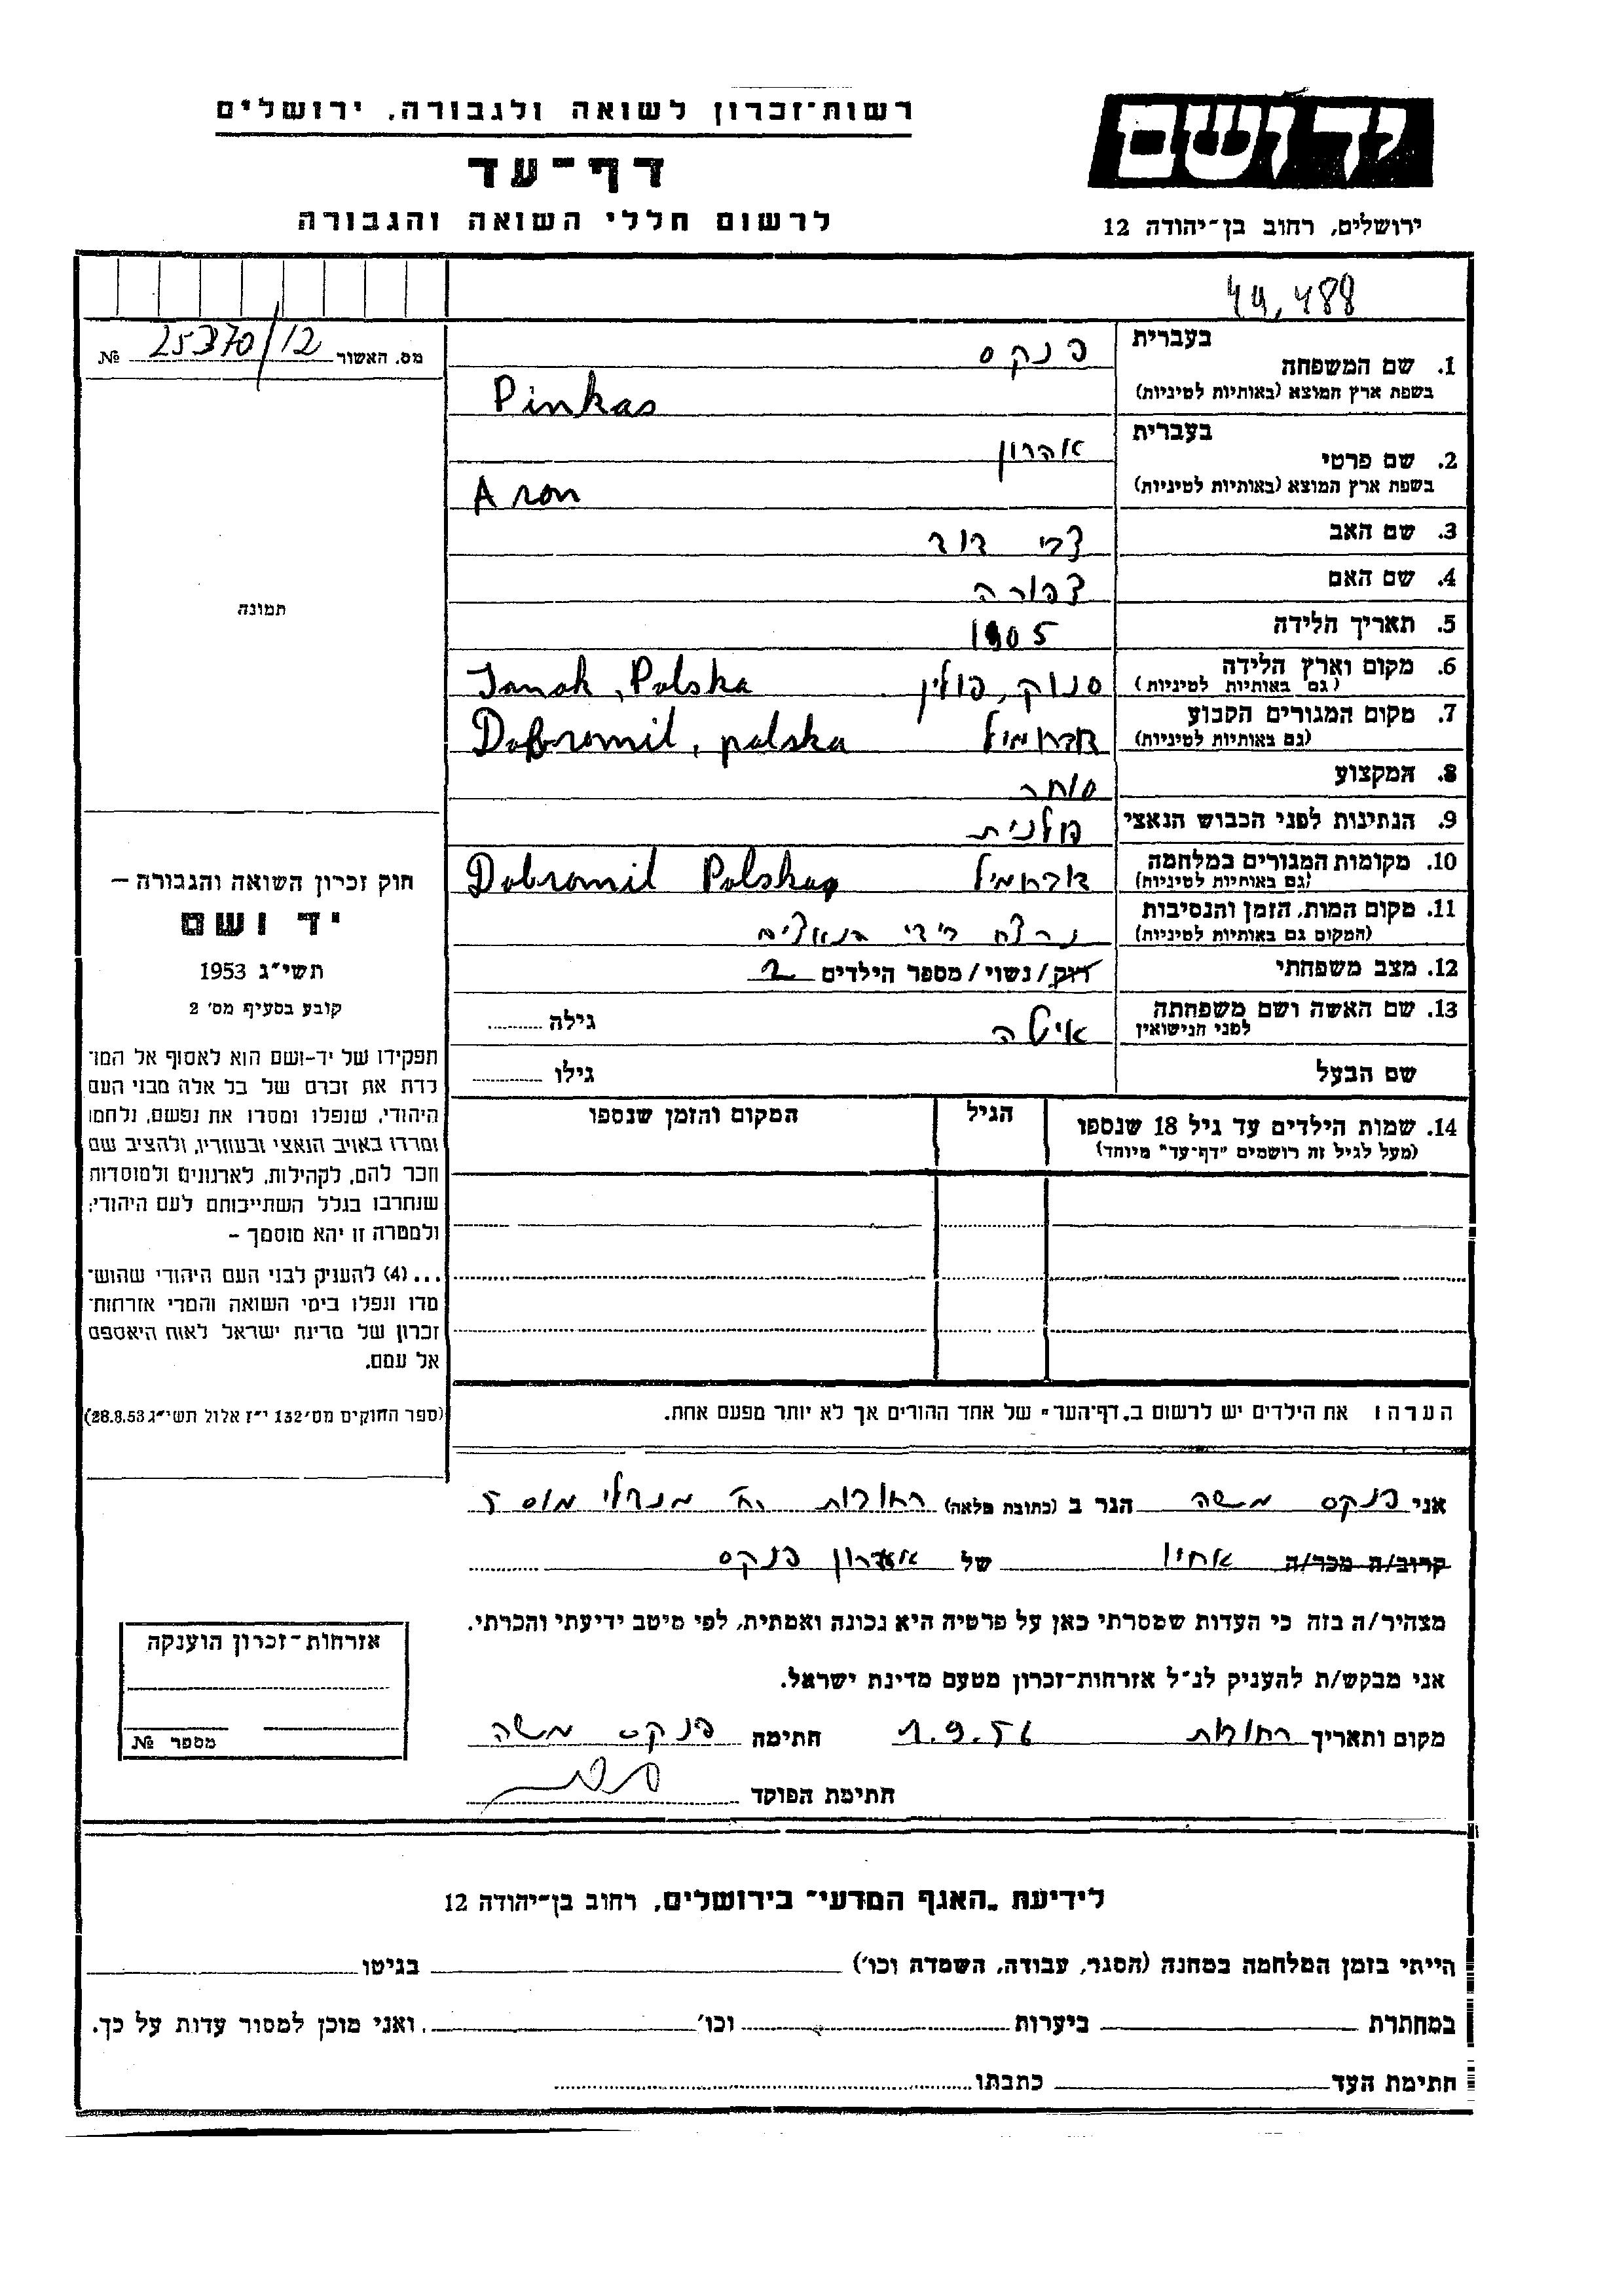 יד ושם
ירושלים, רחוב בן-יהודה 12
רשות-זכרון לשואה ולגבורה, ירושלים
דף-עד
לרשום חללי השואה והגבורה
44,488
מס. האשור 25370/12 №
תמונה
1. שם המשפחה
בעברית פנקס
בשפת ארץ המוצא (באותיות לטיניות) Pinkas
2. שם פרטי
בעברית אהרון
בשפת ארץ המוצא (באותיות לטיניות) Aron
3. שם האב צבי דוד
4. שם האם צפורה
5. תאריך הלידה 1905
6. מקום וארץ הלידה סנוק, פולין Sanok, Polska
(גם באותיות לטיניות)
7. מקום המגורים הקבוע דברומיל Dobromil, polska
(גם באותיות לטיניות)
8. המקצוע סוחר
9. הנתינות לפני הכבוש הנאצי פולנית
10. מקומות המגורים במלחמה דברומיל Dobromil Polska
(גם באותיות לטיניות)
11. מקום המות, הזמן והנסיבות נרצח בידי הנאצים
(המקום גם באותיות לטיניות)
12. מצב משפחתי רווק/נשוי/מספר הילדים 2
13. שם האשה ושם משפחתה איטה גילה
לפני הנישואין
שם הבעל גילו
14. שמות הילדים עד גיל 18 שנספו הגיל המקום והזמן שנספו
(מעל לגיל זה רושמים "דף-עד" מיוחד)
הערה: את הילדים יש לרשום ב„דף-העד" של אחד ההורים אך לא יותר מפעם אחת.
חוק זכרון השואה והגבורה –
יד ושם
תשי"ג 1953
קובע בסעיף מס' 2
תפקידו של יד-ושם הוא לאסוף אל המו-
לדת את זכרם של כל אלה מבני העם
היהודי, שנפלו ומסרו את נפשם, נלחמו
ומרדו באויב הנאצי ובעוזריו, ולהציב שם
וזכר להם, לקהילות, לארגונים ולמוסדות
שנחרבו בגלל השתייכותם לעם היהודי;
ולמטרה זו יהא מוסמך –
...(4) להעניק לבני העם היהודי שהוש-
מדו ונפלו בימי השואה והמרי אזרחות-
זכרון של מדינת ישראל לאות היאספם
אל עמם.
(ספר החוקים מס' 132 י"ז אלול תשי"ג 28.8.53)
אני פנקס משה הגר ב (כתובת מלאה) רחובות רח' מנדלי מוס 5
קרוב/ה מכר/ה אחיו של אהרון פנקס
מצהיר/ה בזה כי העדות שמסרתי כאן על פרטיה היא נכונה ואמתית, לפי מיטב ידיעתי והכרתי.
אני מבקש/ת להעניק לנ"ל אזרחות-זכרון מטעם מדינת ישראל.
מקום ותאריך רחובות 1.9.56 חתימה פנקס משה
חתימת הפוקד
אזרחות-זכרון הוענקה
מספר №
לידיעת „האגף המדעי" בירושלים, רחוב בן-יהודה 12
הייתי בזמן המלחמה במחנה (הסגר, עבודה, השמדה וכו') בגיטו
במחתרת ביערות וכו' ואני מוכן למסור עדות על כך.
חתימת העד כתבתו